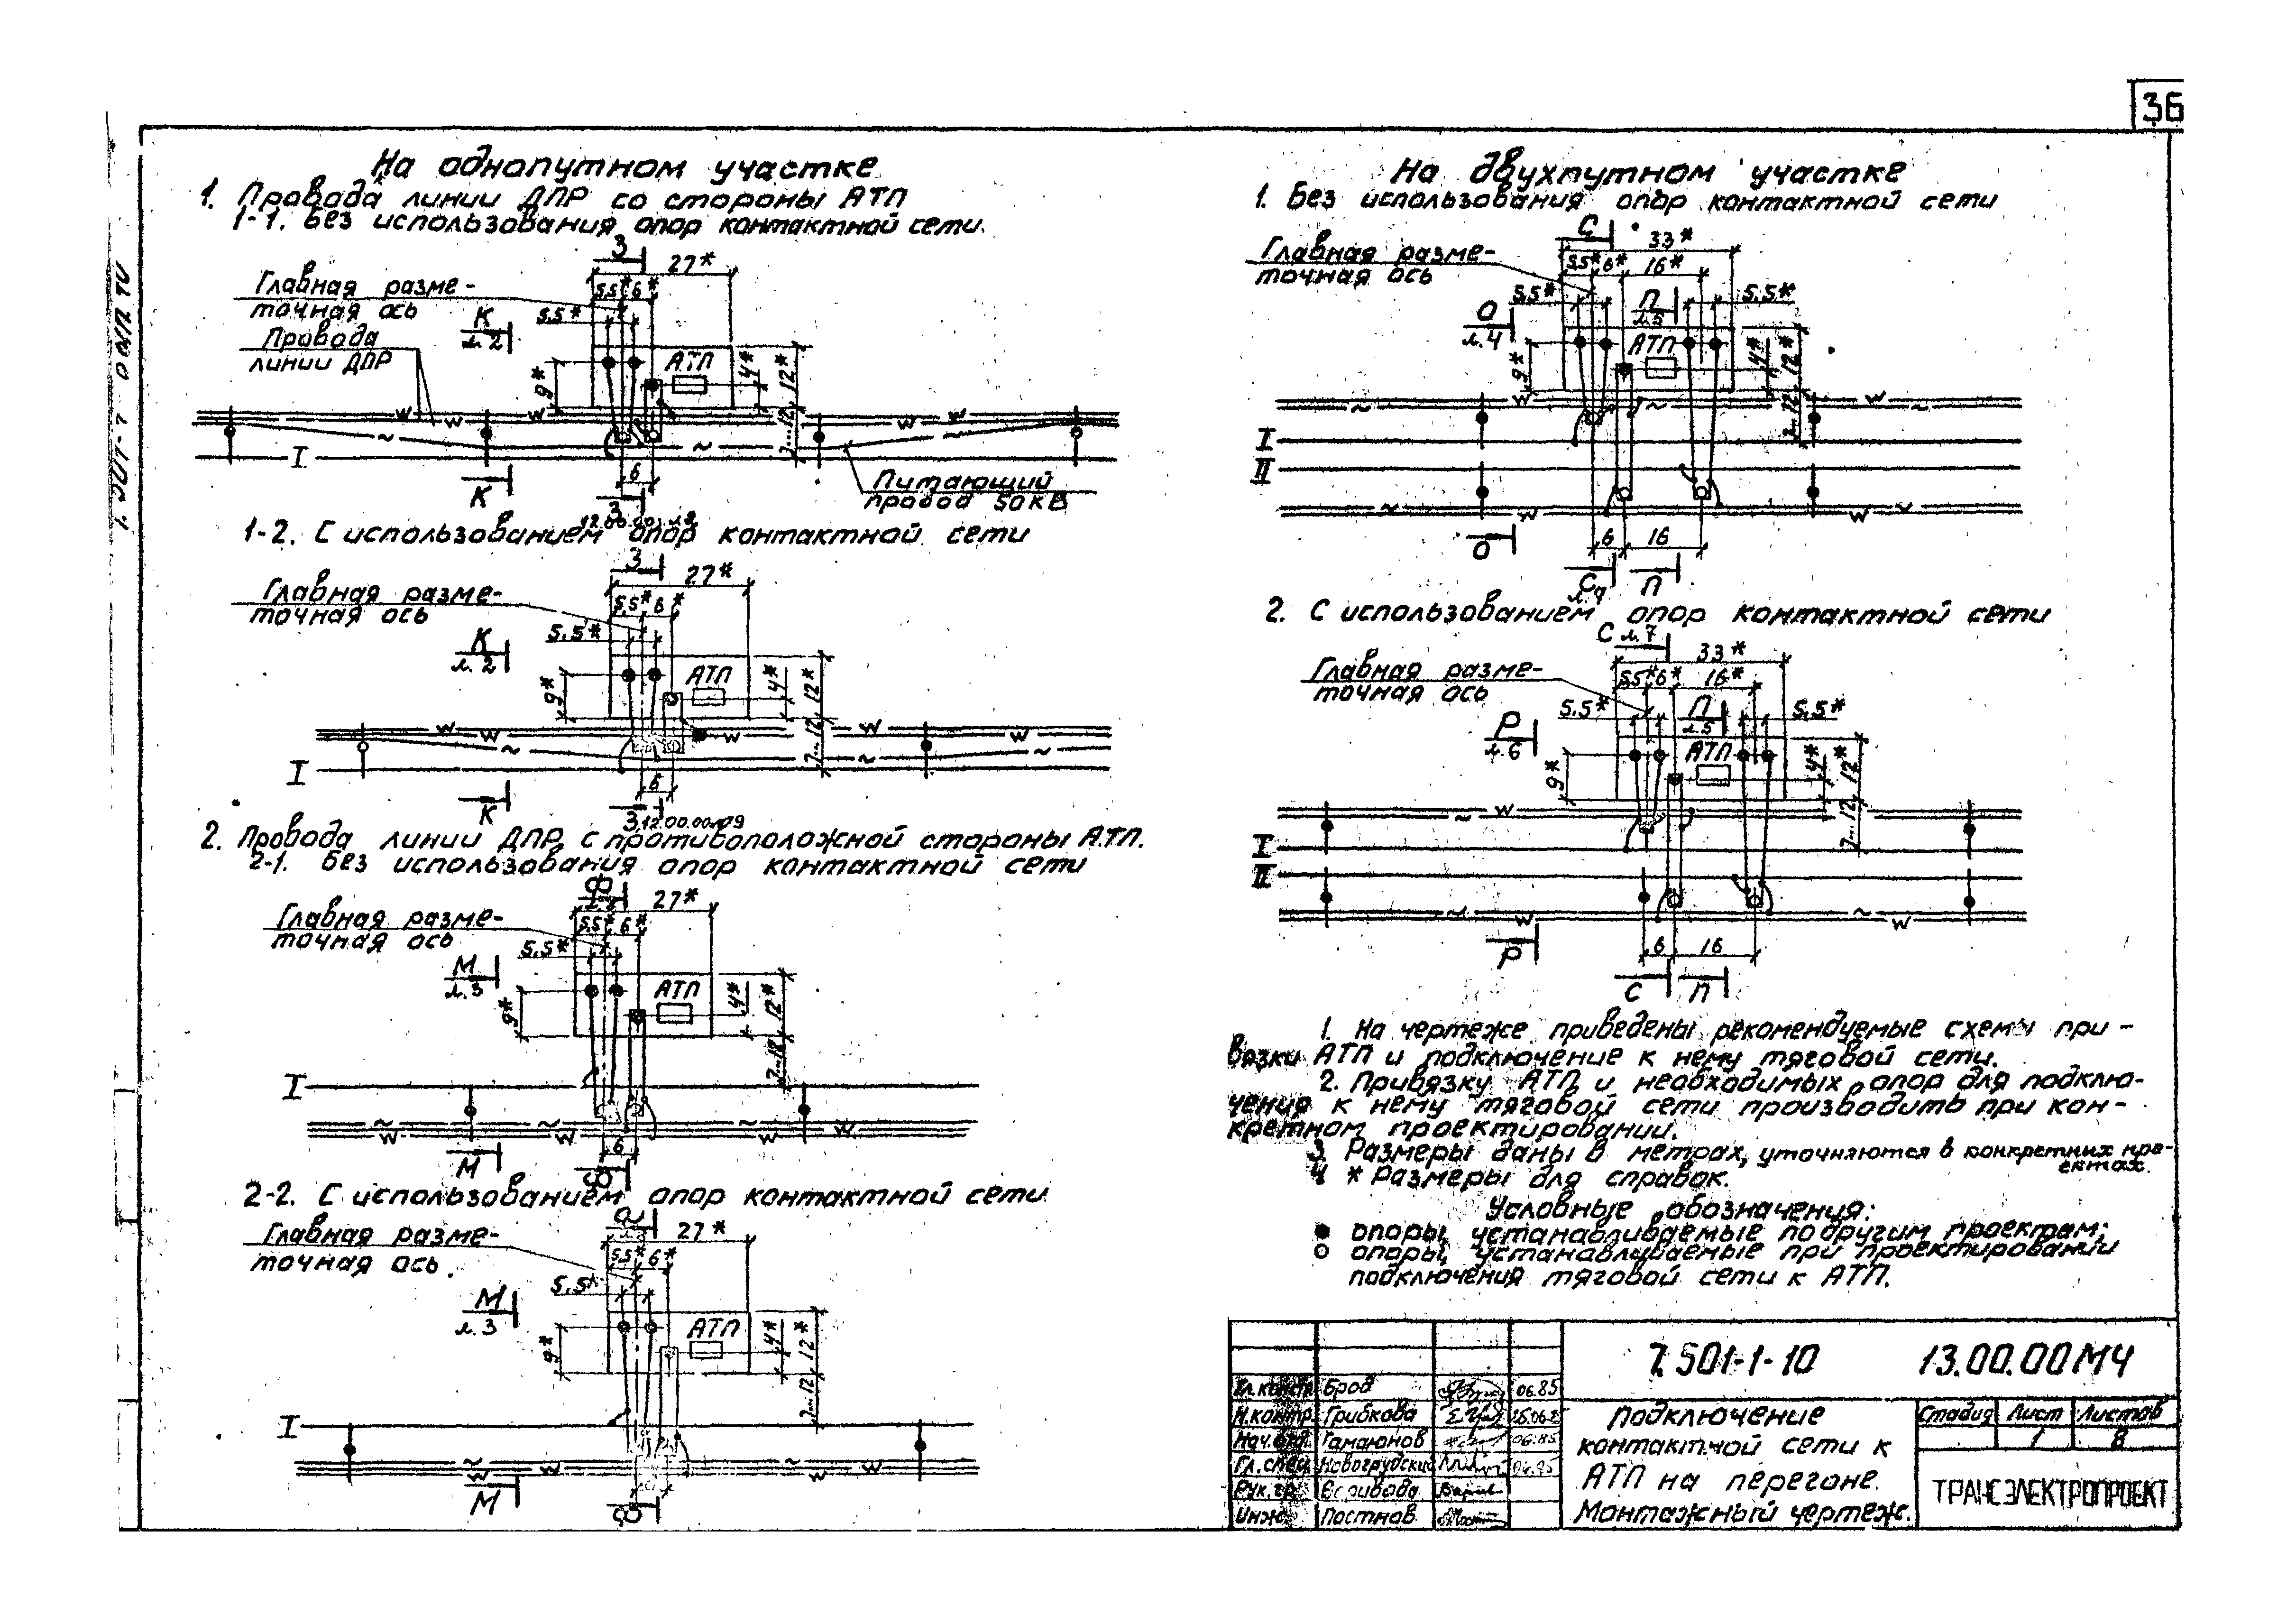 36
На однопутном участке
1. Провода линии ДПР со стороны АТП
1-1. Без использования опор контактной сети.
З
27*
Главная разме-
точная ось
5.5* 6*
5.5*
К
л. 2
Провода
линии ДПР
АТП
9*
4*
12*
7...12
W W W W W
~ ~
I
6
К
З
Питающий
провод 50кВ
1-2. С использованием опор контактной сети
З
27*
Главная разме-
точная ось
5.5* 6*
5.5*
К
л. 2
АТП
9*
4*
12*
7...12
W W W W W
~ ~ ~
I
6
К
З 12.00.00 л9
2. Провода линии ДПР с противоположной стороны АТП.
2-1. Без использования опор контактной сети
Ф
27*
Главная разме-
точная ось
5.5* 6*
5.5*
М
л.3
АТП
9*
4*
12*
7...12
I
~ ~ ~ ~
W W W W
6
М
Ф
2-2. С использованием опор контактной сети
27*
Главная разме-
точная ось.
5.5* 6*
5.5*
М
л.3
АТП
9*
4*
12*
7...12
I
~ ~
W W W W
М
Ф
На двухпутном участке
1. Без использования опор контактной сети
С
33*
Главная разме-
точная ось
5.5* 6* 16*
5.5*
П
л.5
5.5*
О
л.4
АТП
9*
4*
12*
7...12
W W
~ ~ ~
I
II
W W
О
6 16
С
П
2. С использованием опор контактной сети
С л.7
33*
Главная разме-
точная ось
5.5* 6* 16*
5.5*
П
л.5
5.5*
Р
л.6
АТП
9*
4*
12*
7...12
W W
~ ~
I
II
W W
Р
6 16
С П
1. На чертеже приведены рекомендуемые схемы при-
вязки АТП и подключение к нему тяговой сети.
2. Привязку АТП и необходимых опор для подклю-
чения к нему тяговой сети производить при кон-
кретном проектировании.
3. Размеры даны в метрах, уточняются в конкретных про-
ектах.
4 * Размеры для справок.
Условные обозначения:
● опоры, устанавливаемые по другим проектам;
○ опоры, устанавливаемые при проектировании
подключения тяговой сети к АТП.
7.501-1-10 13.00.00МЧ
Гл.констр. Брод 06.85
Н.контр. Грибкова
Нач.отд. Гамаюнов 06.85
Гл.спец. Новогрудский
Рук.гр.
Инж. Постнов
Подключение
контактной сети к
АТП на перегоне.
Монтажный чертеж.
Стадия Лист Листов
1 8
ТРАНСЭЛЕКТРОПРОЕКТ